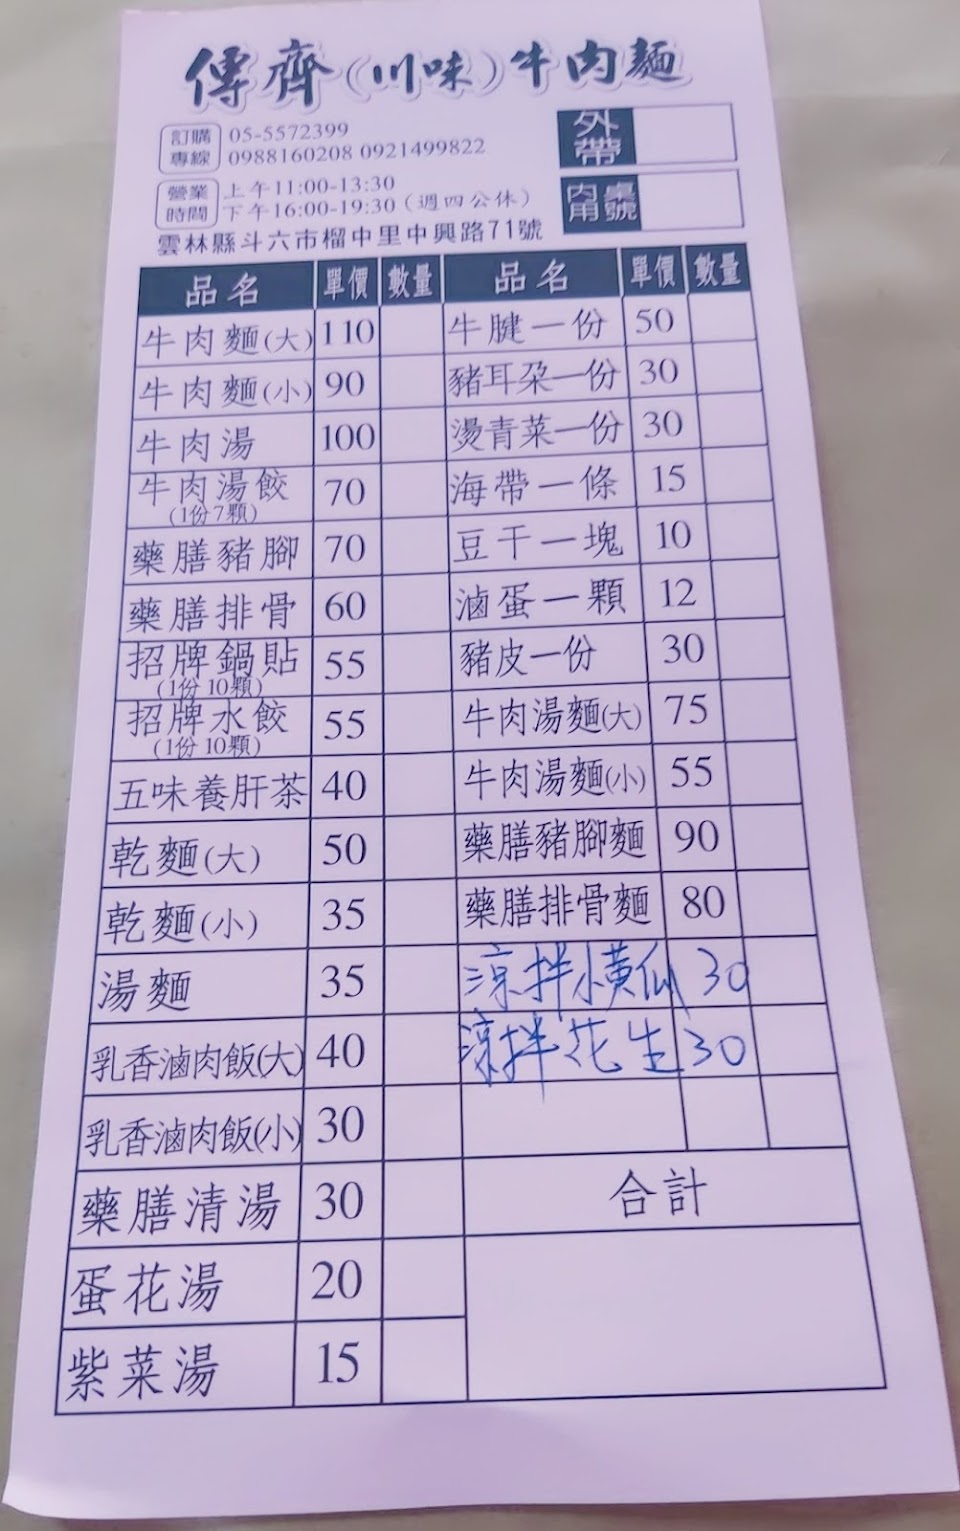 傳齊(川味)牛肉麵
訂購專線 05-5572399
0988160208 0921499822
外帶
營業時間 上午11:00-13:30
下午16:00-19:30(週四公休)
內用 桌號
雲林縣斗六市榴中里中興路71號
品名 單價 數量 品名 單價 數量
牛肉麵(大) 110 牛腱一份 50
牛肉麵(小) 90 豬耳朵一份 30
牛肉湯 100 燙青菜一份 30
牛肉湯餃 70 海帶一條 15
(1份7顆)
藥膳豬腳 70 豆干一塊 10
藥膳排骨 60 滷蛋一顆 12
招牌鍋貼 55 豬皮一份 30
(1份10顆)
招牌水餃 55 牛肉湯麵(大) 75
(1份10顆)
五味養肝茶 40 牛肉湯麵(小) 55
乾麵(大) 50 藥膳豬腳麵 90
乾麵(小) 35 藥膳排骨麵 80
湯麵 35 涼拌小黃瓜 30
乳香滷肉飯(大) 40 涼拌花生 30
乳香滷肉飯(小) 30
藥膳清湯 30 合計
蛋花湯 20
紫菜湯 15